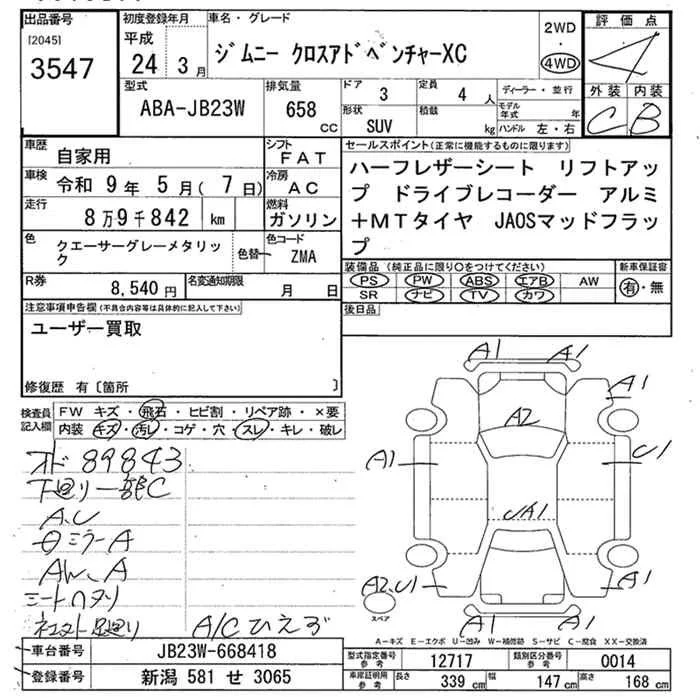 出品番号
[2045]
3547
初度登録年月
平成
24 3 月
車名・グレード
ジムニー クロスアドベンチャーXC
2WD
・
4WD
評価点
4
外装 内装
C B
型式
ABA-JB23W
排気量
658
cc
ドア
3
定員
4 人
形状
SUV
積載
kg
ディーラー・並行
モデル年式 年
ハンドル 左・右
車歴
自家用
シフト
FAT
車検
令和 9 年 5 月( 7 日)
冷房
AC
走行
8 万 9 千 842 km
燃料
ガソリン
色
クエーサーグレーメタリック
色替
色コード
ZMA
R券
8,540 円
名変通知期限
月 日
セールスポイント(正常に機能するものに限ります)
ハーフレザーシート リフトアッ
プ ドライブレコーダー アルミ
+MTタイヤ JAOSマッドフラッ
プ
装備品(純正品に限り○をつけてください)
PS PW ABS エアB AW
SR ナビ TV カワ
新車保証書
有・無
後日品
注意事項申告欄(不具合内容等は具体的に記入して下さい)
ユーザー買取
修復歴 有〔箇所 〕
検査員記入欄
FW キズ・飛石・ヒビ割・リペア跡・×要
内装 キズ・汚レ・コゲ・穴・スレ・キレ・破レ
オド 89843
下廻り一部C
A.U
ミラーA
AW、A
シートヘタリ
A/Cひえず
A1 A1
A1
A2
A1
U1
A1
A2.U1
A1
A1 A1
スペア
A-キズ E-エクボ U-凹み W-補修跡 S-サビ C-腐食 XX-交換済
車台番号
JB23W-668418
登録番号
新潟 581 せ 3065
型式指定番号
参考
12717
類別区分番号
参考
0014
車庫証明用
参考
長さ
339 cm
幅
147 cm
高さ
168 cm